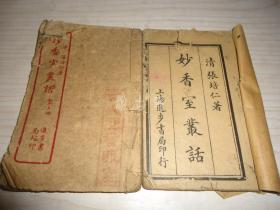 清 張培仁著
妙香室叢話
上海進步書局印行
妙香室叢話
進步書局印